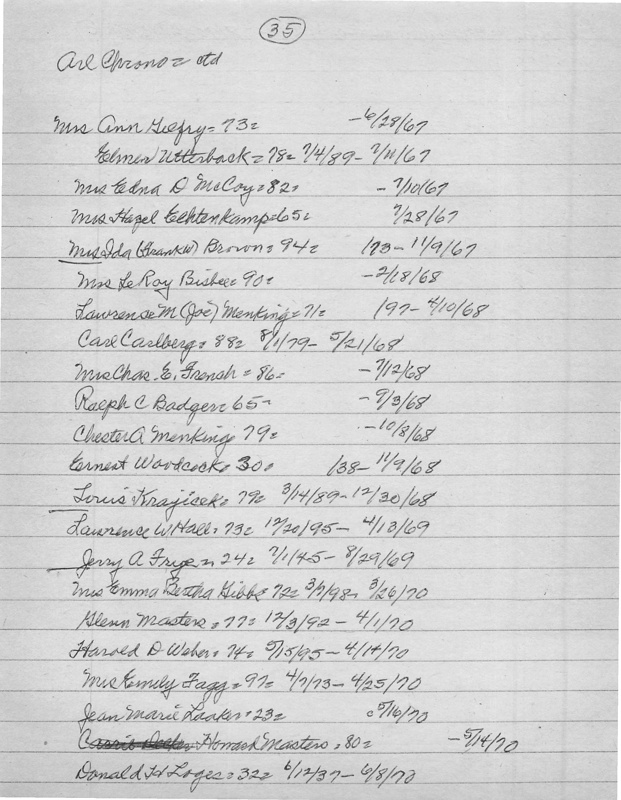 35
Arl Chrono = ctd
Mrs Ann Golfry = 73 = -6/28/67
Elmer Utterback = 78 = 7/4/89 - 7/11/67
Mrs Edna D McCoy = 82 = - 7/10/67
Mrs Hazel Echtenkamp = 65 = 7/28/67
Mrs Ida (Frank W) Brown = 94 = /73 - 11/9/67
Mrs Le Roy Bisbee = 90 = -2/18/68
Lawrense M (Joe) Menking = 71 = /97 - 4/10/68
Carl Carlberg = 88 = 8/1/79 - 5/21/68
Mrs Chas. E. French = 86 - - 7/12/68
Ralph C Badger = 65 - - 9/3/68
Chester A Menking 79 = - 10/8/68
Ernest Woodcock = 30 = /38 - 11/9/68
Louis Krajicek = 79 = 3/14/89 - 12/30/68
Lawrence W Hall = 73 = 12/20/95 - 4/13/69
Jerry A Frye = 24 = 7/1/45 - 8/29/69
Mrs Emma Bertha Gibbs 72 = 3/9/98 - 3/26/70
Glenn Masters = 77 = 12/3/92 - 4/1/70
Harold D Weber = 74 = 5/15/95 - 4/14/70
Mrs Emily Fagg = 97 = 4/7/73 - 4/25/70
Jean Marie Laaker = 23 = 5/16/70
Howard Masters = 80 = - 5/14/70
Donald H Loges = 32 = 6/12/37 - 6/8/70